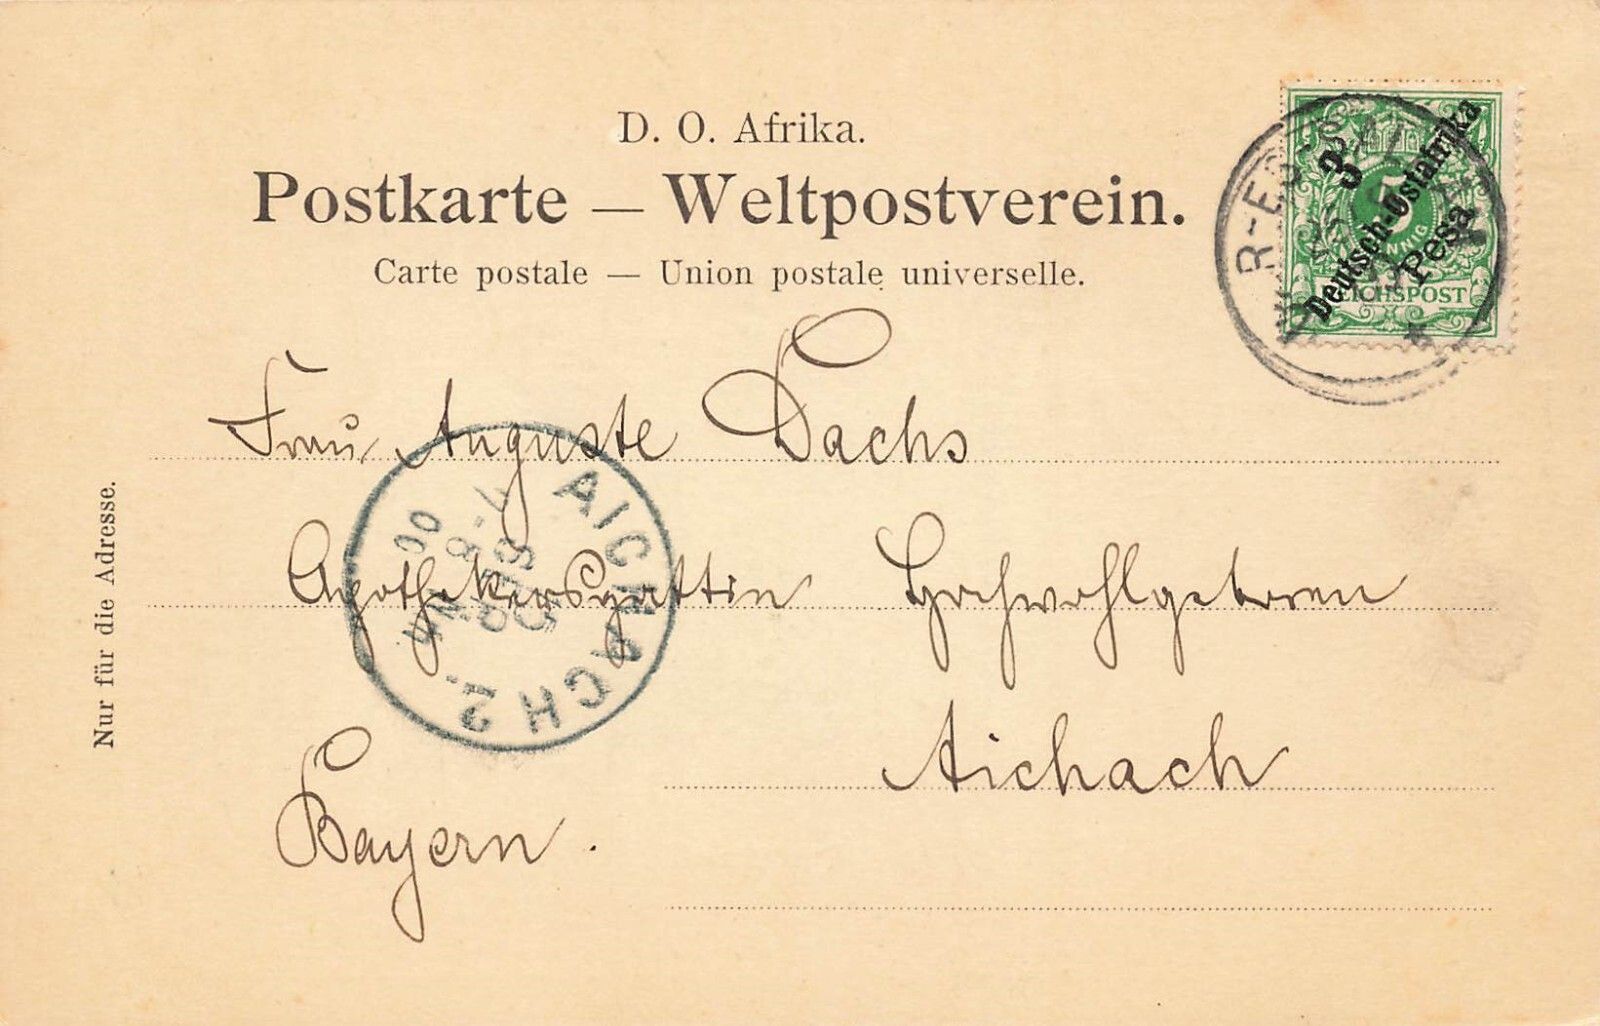 D. O. Afrika.
Postkarte — Weltpostverein.
Carte postale — Union postale universelle.
3
Deutsch-Ostafrika
Pesa
5
PFENNIG
REICHSPOST
R-ES-S
Frau Auguste Dachs
Apothekersgattin Hochwohlgeboren
Aichach
Bayern.
AICHACH 2.
SEP
7-8
00
Nur für die Adresse.